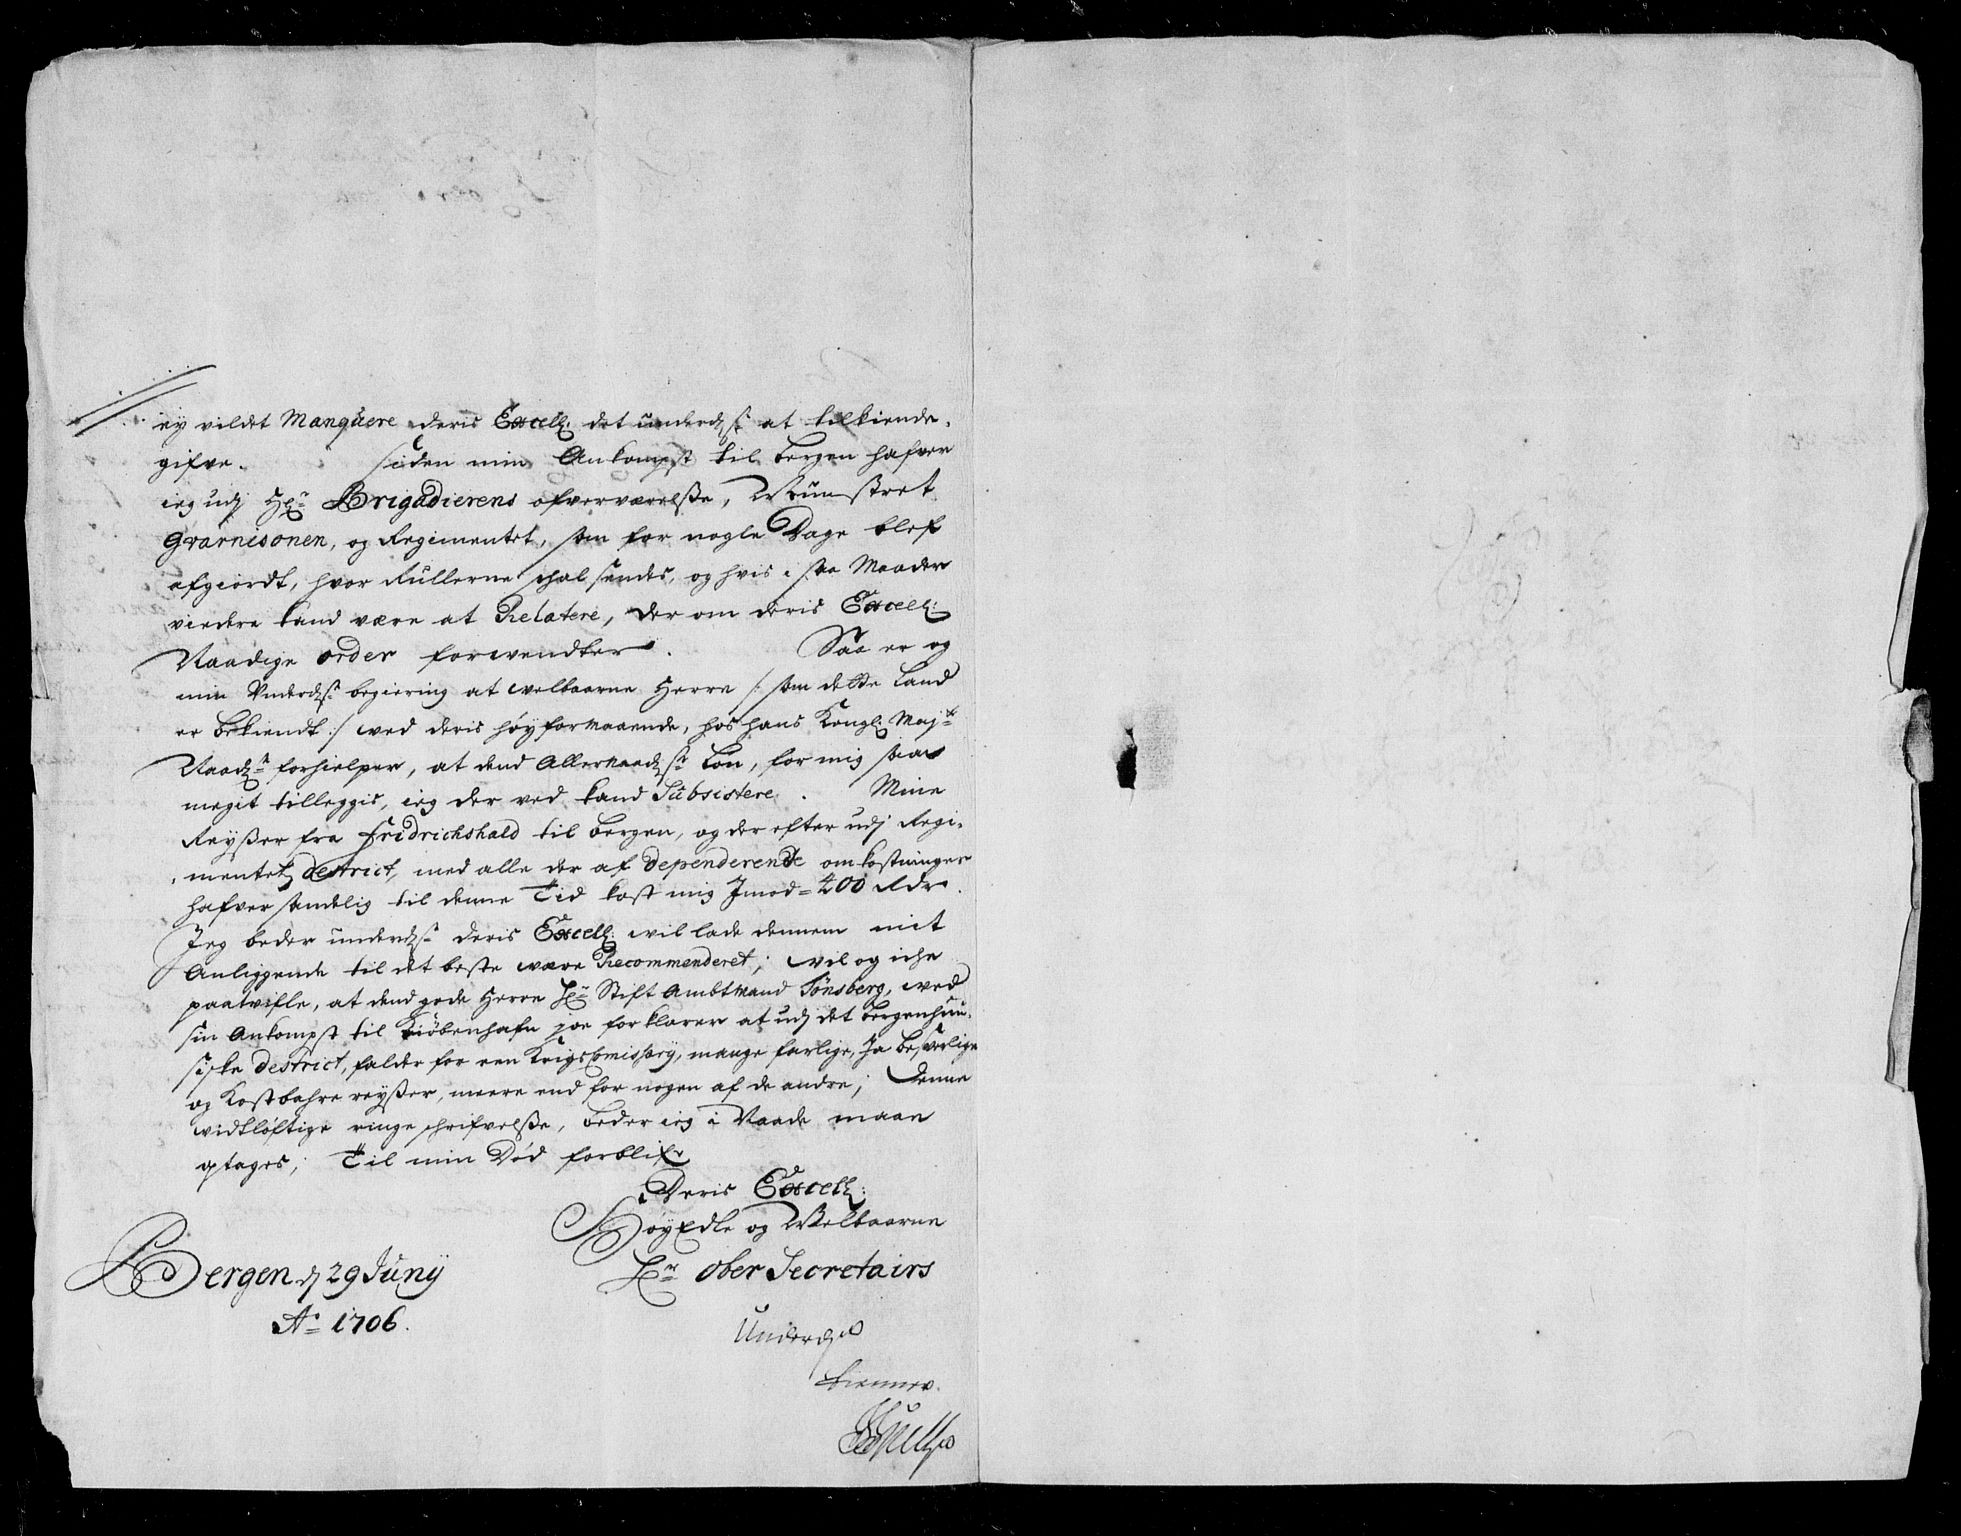 ey vildet Manqùere deris Excell: det ùnderdst at tilkiende-
gifve. Siden min Ankompst til bergen hafver
ieg udj Hr: Brigadierens ofverværelsse, Mùnstret
Gvarnisonen, og Regimentet, som for nogle Dage blef
afgiordt, hvor Rùllerne schal sendes, og hvis i saa Maader
viedere kand være at Relatere, der om deris Excell:
Naadige order forwendter. Saa er og
min Underdst begiering at welbaarne Herre /: som dette Land
er bekiendt :/ wed deris høyformaaende, hos hans Kongl: Mayts
Naade forhielper, at dend Allernaadst Løn, for mig saa
megit tilleggis, ieg der ved kand Sùbsistere. Mine
Reysser fra Fridrichshald til bergen, og der efter udj Regi-
mentetz destrict, med alle der af dependerende omkostninger
hafver sandelig til denne Tid kost mig Jmod = 400 Rdr.
Jeg beder ùnderdst deris Excell: wil lade dennem mit
Anliggende til det beste være Recommenderet; wil og iche
paatvifle, at dend gode Herre Hr: Stift Ambtmand Tønsberg, wed
sin Ankompst til Kiøbenhafn jo forklarer at udj det bergenhùù-
siske destrict, falder for een KrigsComissary, mange farlige, Ja besverlige
og Kostbahre reysser, meere end for nogen af de andre; Denne
widtløftige ringe schrifvelsse, beder ieg i Naade maae
optages; Til min Død forblifr
Deris Excell:
HøyEdle og Welbaarne
Hr: ober Secretairs
Underds
tienner.
Bergen d 29 Jùny
Ao 1706.